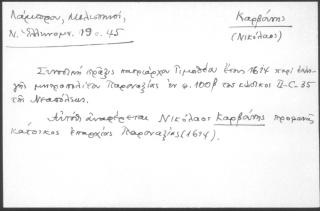 Λάμπρου, Μελισσηνοί,
Ν. Ἑλληνομν. 19 σ. 45
Καρβάνης
(Νικόλαος)
Συνοδική πρᾶξις πατριάρχου Τιμοθέου ἔτους 1614 περί ἐκλο-
γῆς μητροπολίτου Παροναξίας ἐν φ. 100β τοῦ κώδικος II-C-35
τῆς Νεαπόλεως.
Αὐτόθι ἀναφέρεται Νικόλαος Καρβάνης προφανῶς
κάτοικος ἐπαρχίας Παροναξίας (1614).